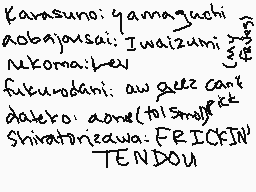 Karasuno: yamaguchi
aobajousai: Iwaizumi (my favs)
nekoma: Lev
fukurodani: aw geez cant pick
dateko: aone (tol smol)
Shiratorizawa: FRICKIN'
TENDOU